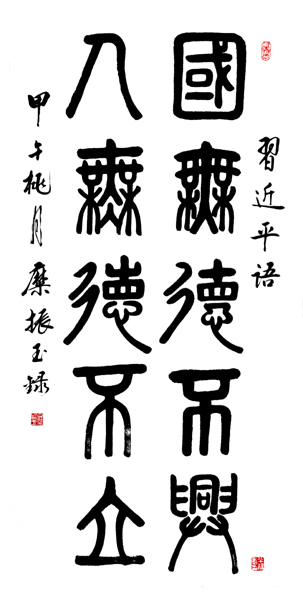 習近平语
國無德不興
人無德不立
甲午桃月糜振玉録